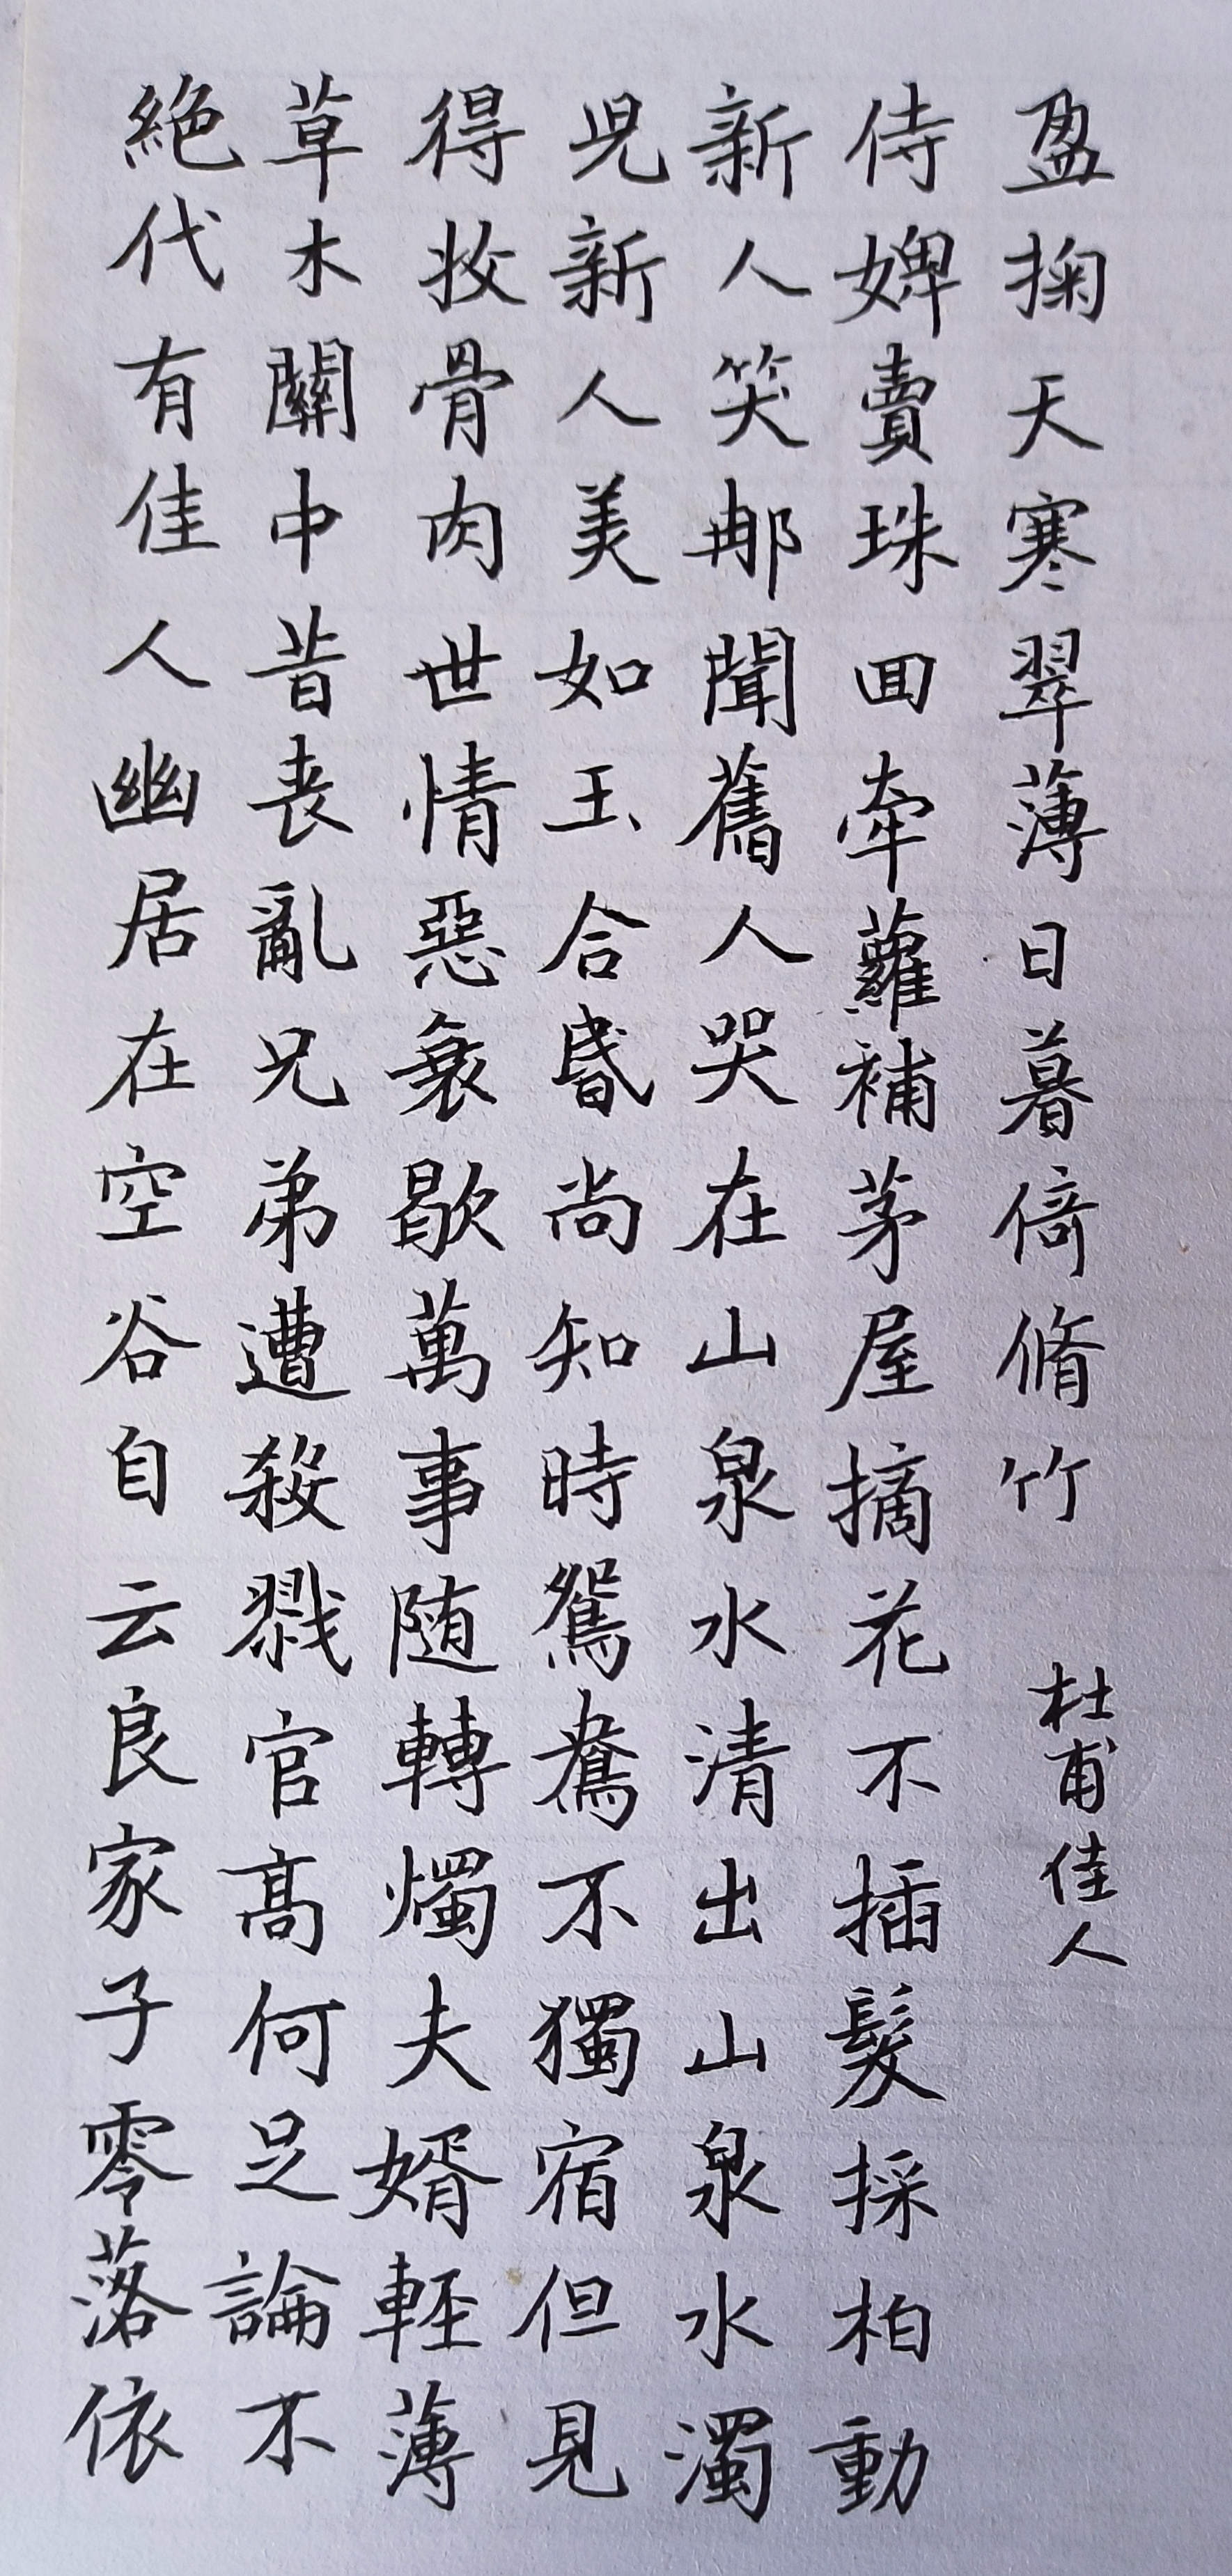 絶代有佳人幽居在空谷自云良家子零落依
草木關中昔喪亂兄弟遭殺戮官高何足論不
得收骨肉世情惡衰歇萬事随轉燭夫婿輕薄
兒新人美如玉合昬尚知時鴛鴦不獨宿但見
新人笑那聞舊人哭在山泉水清出山泉水濁
侍婢賣珠回牽蘿補茅屋摘花不插髮採柏動
盈掬天寒翠薄日暮倚脩竹
杜甫佳人